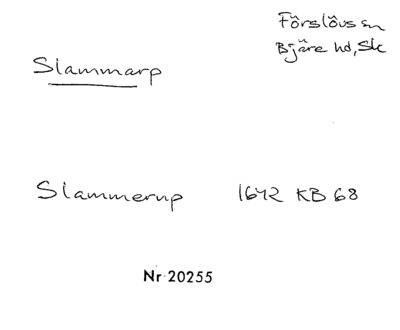 Förslövs sn
Bjäre hd, Sk
Slammarp
Slammerup 1642 KB 68
Nr 20255